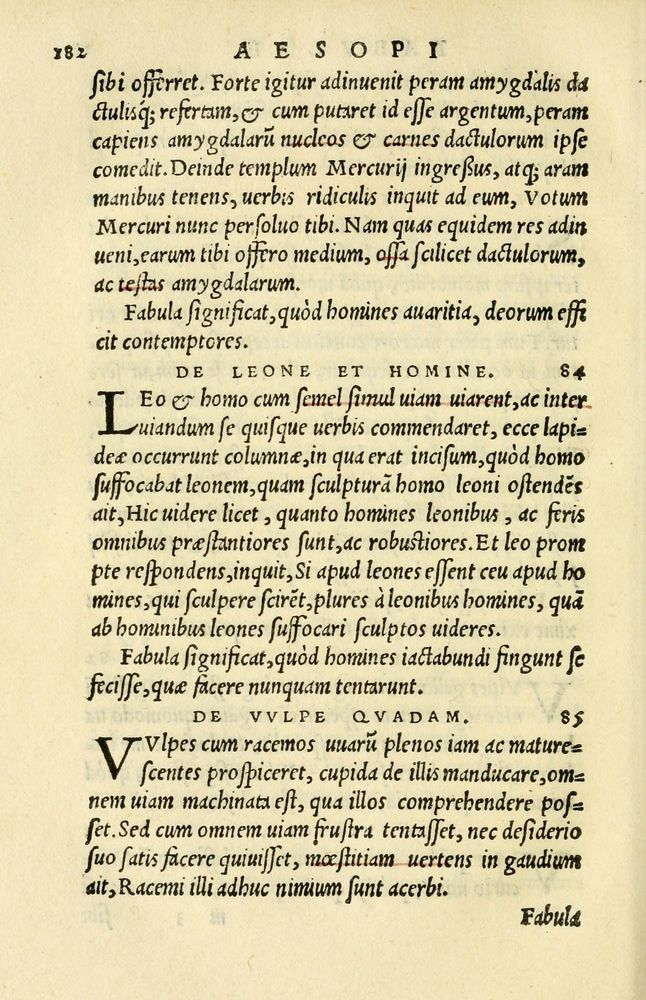 182 AESOPI
sibi offerret. Forte igitur adinuenit peram amygdalis da
ctulisq; refertam, & cum putaret id esse argentum, peram
capiens amygdalarū nucleos & carnes dactulorum ipse
comedit. Deinde templum Mercurij ingressus, atq; aram
manibus tenens, uerbis ridiculis inquit ad eum, Votum
Mercuri nunc persoluo tibi. Nam quas equidem res adin
ueni, earum tibi offero medium, ossa scilicet dactulorum,
ac testas amygdalarum.
Fabula significat, quòd homines auaritia, deorum effi
cit contemptores.
DE LEONE ET HOMINE. 84
LEo & homo cum semel simul uiam uiarent, ac inter
uiandum se quisque uerbis commendaret, ecce lapi=
deæ occurrunt columnæ, in qua erat incisum, quòd homo
suffocabat leonem, quam sculpturā homo leoni ostendēs
ait, Hic uidere licet, quanto homines leonibus, ac feris
omnibus præstantiores sunt, ac robustiores. Et leo prom
pte respondens, inquit, Si apud leones essent ceu apud ho
mines, qui sculpere scirēt, plures à leonibus homines, quā
ab hominibus leones suffocari sculptos uideres.
Fabula significat, quòd homines iactabundi fingunt se
fecisse, quæ facere nunquam tentarunt.
DE VVLPE QVADAM. 85
VVlpes cum racemos uuarū plenos iam ac mature=
scentes prospiceret, cupida de illis manducare, om=
nem uiam machinata est, qua illos comprehendere pos=
set. Sed cum omnem uiam frustra tentasset, nec desiderio
suo satis facere quiuisset, mœstitiam uertens in gaudium
ait, Racemi illi adhuc nimium sunt acerbi.
Fabula